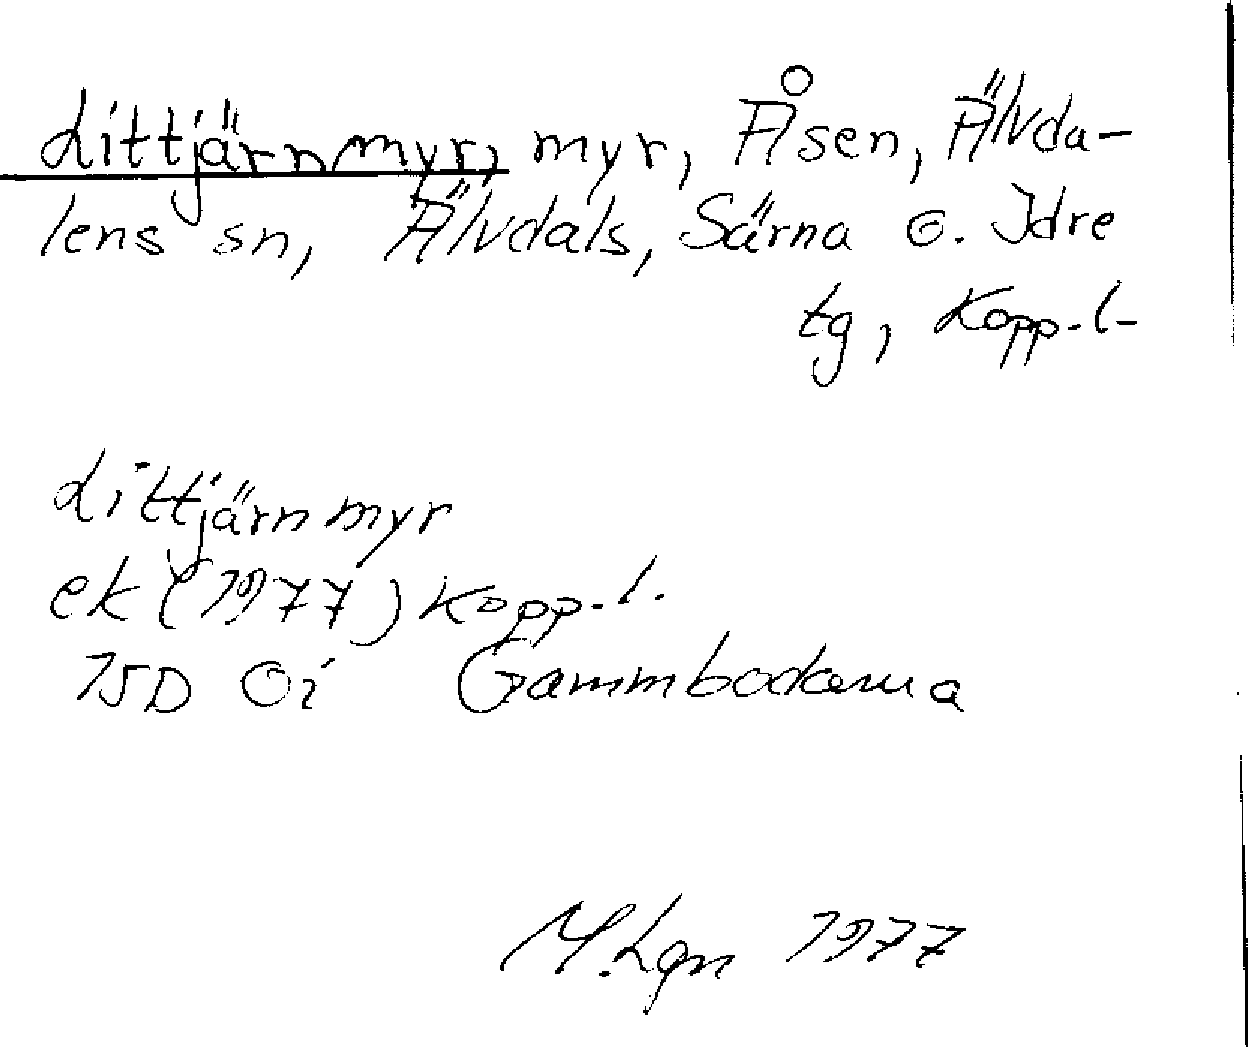 Littjärnmyr, myr, Åsen, Älvda-
lens sn, Älvdals, Särna o. Idre
tg, Kopp. l.
Littjärnmyr
ek (1977) Kopp. l.
15D 0i Gammbodarna
M. Lgn 1977